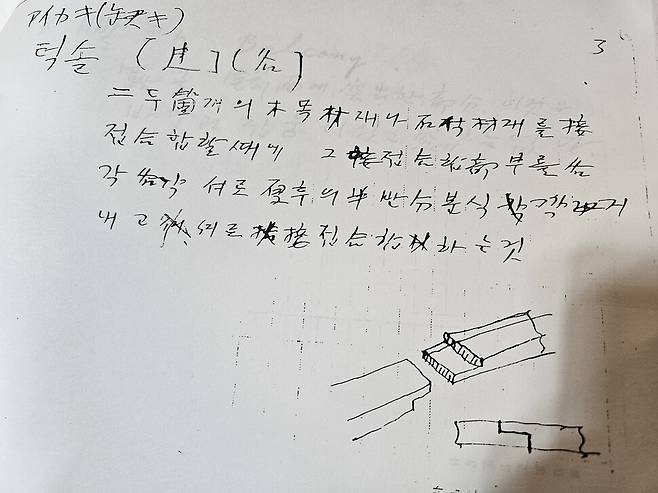 アイカキ(欠キ)
3
턱솔 [ ] ( )
二 두 箇 개의 木 목 材 재나 石 석 材 재를 接
접 合 합할 때에 그 接 접 合 합 部 부를
각각 서로 厚 후의 半 반 分 분식 깎거
내고 서로 接 접 合 합하는것